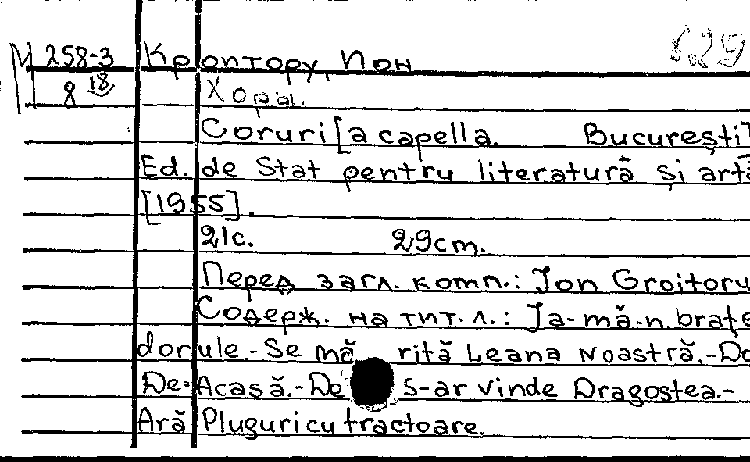 М 258-3 Кройтору, Йон 829
8 18 Хоры.
Coruri [a capella. București]
Ed. de Stat pentru literatură și artă
[1955].
21с. 29cm.
Перед загл. комп.: Jon Croitoru
Содерж. на тит. л.: Ja-mă-n brațe
dorule.-Se mă rită Leana Noastră.-Do
De-Acasă.-De s-ar vinde Dragostea.-
Ară Pluguri cu tractoare.